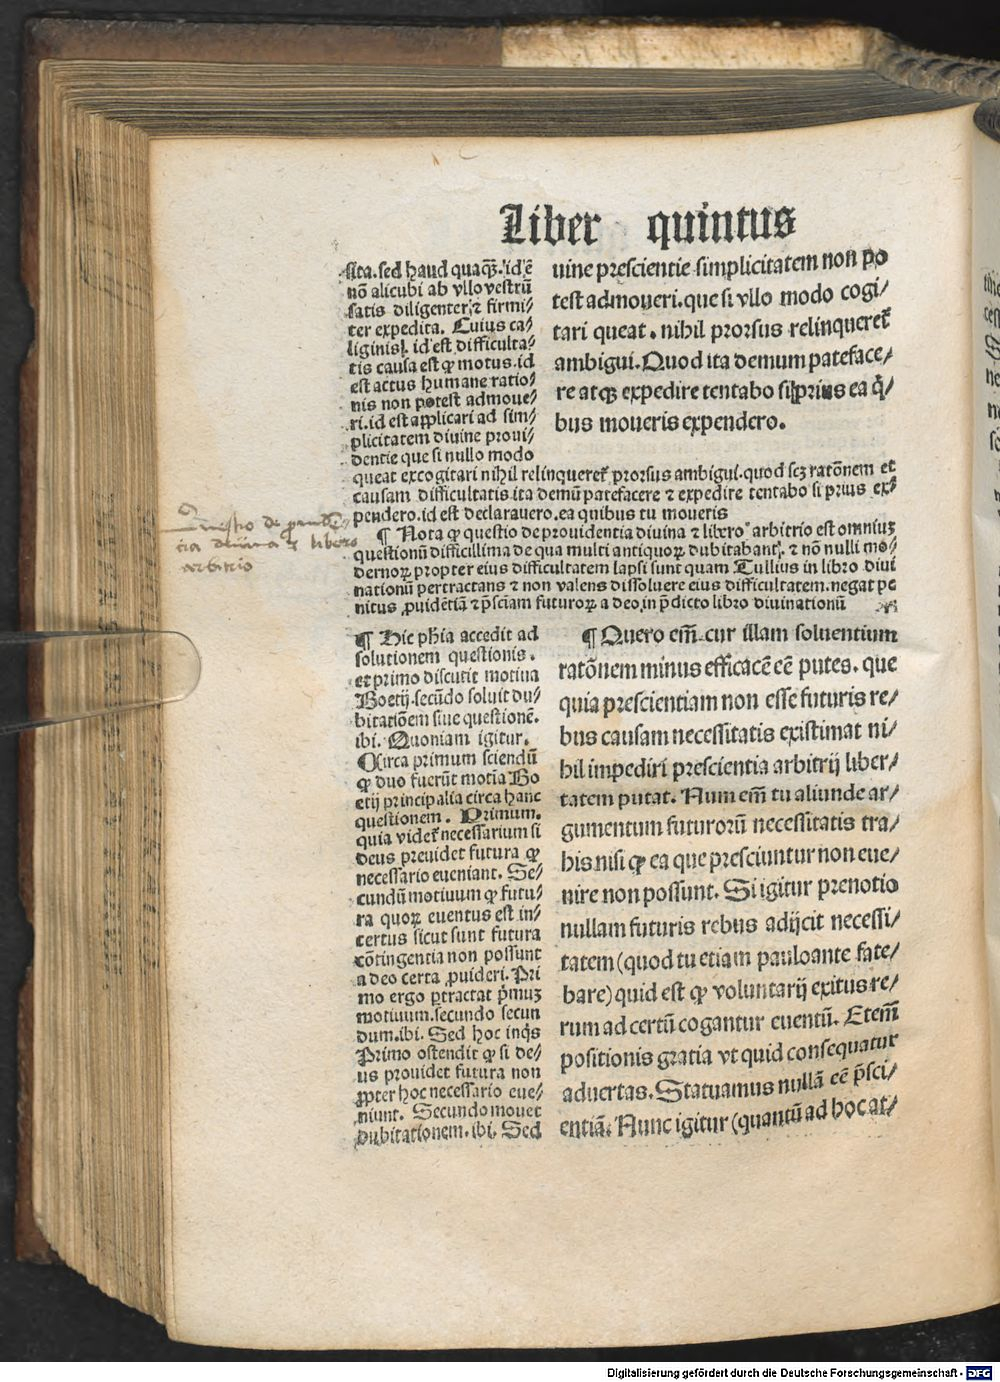 Liber quintus
sita. sed haud quaqꝫ. id ē
nō alicubi ab vllo vestrū
satis diligenter ⁊ firmi⸗
ter expedita. Cuius ca⸗
liginis. id est difficulta⸗
tis causa est ꝙ motus. id
est actus humane ratio⸗
nis non potest admoue⸗
ri. id est applicari ad sim⸗
plicitatem diuine proui⸗
dentie que si nullo modo
uine prescientie simplicitatem non po
test admoueri. que si vllo modo cogi⸗
tari queat. nihil prorsus relinqueret̄
ambigui. Quod ita demum pateface⸗
re atqꝫ expedire tentabo si prius ea q̄⸗
bus moueris expendero.
queat excogitari nihil relinqueret̄ prorsus ambigui. quod scꝫ ratōnem et
causam difficultatis ita demū patefacere ⁊ expedire tentabo si prius ex⸗
pendero. id est declarauero. ea quibus tu moueris
¶ Nota ꝙ questio de prouidentia diuina ⁊ libero arbitrio est omniuꝫ
questionū difficillima de qua multi antiquoꝝ dubitabant̄. ⁊ nō nulli mo⸗
dernoꝝ propter eius difficultatem lapsi sunt quam Tullius in libro diui
nationū pertractans ⁊ non valens dissoluere eius difficultatem. negat pe
nitus ꝓuidētiā ⁊ p̄sciam futuroꝝ a deo. in p̄dicto libro diuinationū
Questio de prouidē⸗
tia diuina ⁊ libero
arbitrio
¶ Hic ph̄ia accedit ad
solutionem questionis.
et primo discutit motiua
Boetij. secūdo soluit du⸗
bitatiōem siue questionē.
ibi. Quoniam igitur.
Circa primum sciendū
ꝙ duo fuerūt motiua Bo
etij principalia circa hanc
questionem. Primum.
quia videt̄ necessarium si
deus preuidet futura ꝙ
necessario eueniant. Se⸗
cundū motiuum ꝙ futu⸗
ra quoꝝ euentus est in⸗
certus sicut sunt futura
cōtingentia non possunt
a deo certa ꝓuideri. Pri
mo ergo ꝑtractat p̄muꝫ
motiuum. secundo secun
dum. ibi. Sed hoc inq̄s
Primo ostendit ꝙ si de⸗
us prouidet futura non
ꝓpter hoc necessario eue⸗
niunt. Secundo mouet
dubitationem. ibi. Sed
¶ Quero em̄. cur illam soluentium
ratōnem minus efficacē eē putes. que
quia prescientiam non esse futuris re⸗
bus causam necessitatis existimat ni⸗
hil impediri prescientia arbitrij liber⸗
tatem putat. Num em̄ tu aliunde ar⸗
gumentum futurorū necessitatis tra⸗
his nisi ꝙ ea que presciuntur non eue⸗
nire non possunt. Si igitur prenotio
nullam futuris rebus adijcit necessi⸗
tatem (quod tu etiam pauloante fate⸗
bare) quid est ꝙ voluntarij exitus re⸗
rum ad certū cogantur euentū. Etem̄
positionis gratia vt quid consequatur
aduertas. Statuamus nullā eē p̄sci⸗
entiā. Nunc igitur (quantū ad hoc at⸗
Digitalisierung gefördert durch die Deutsche Forschungsgemeinschaft - DFG